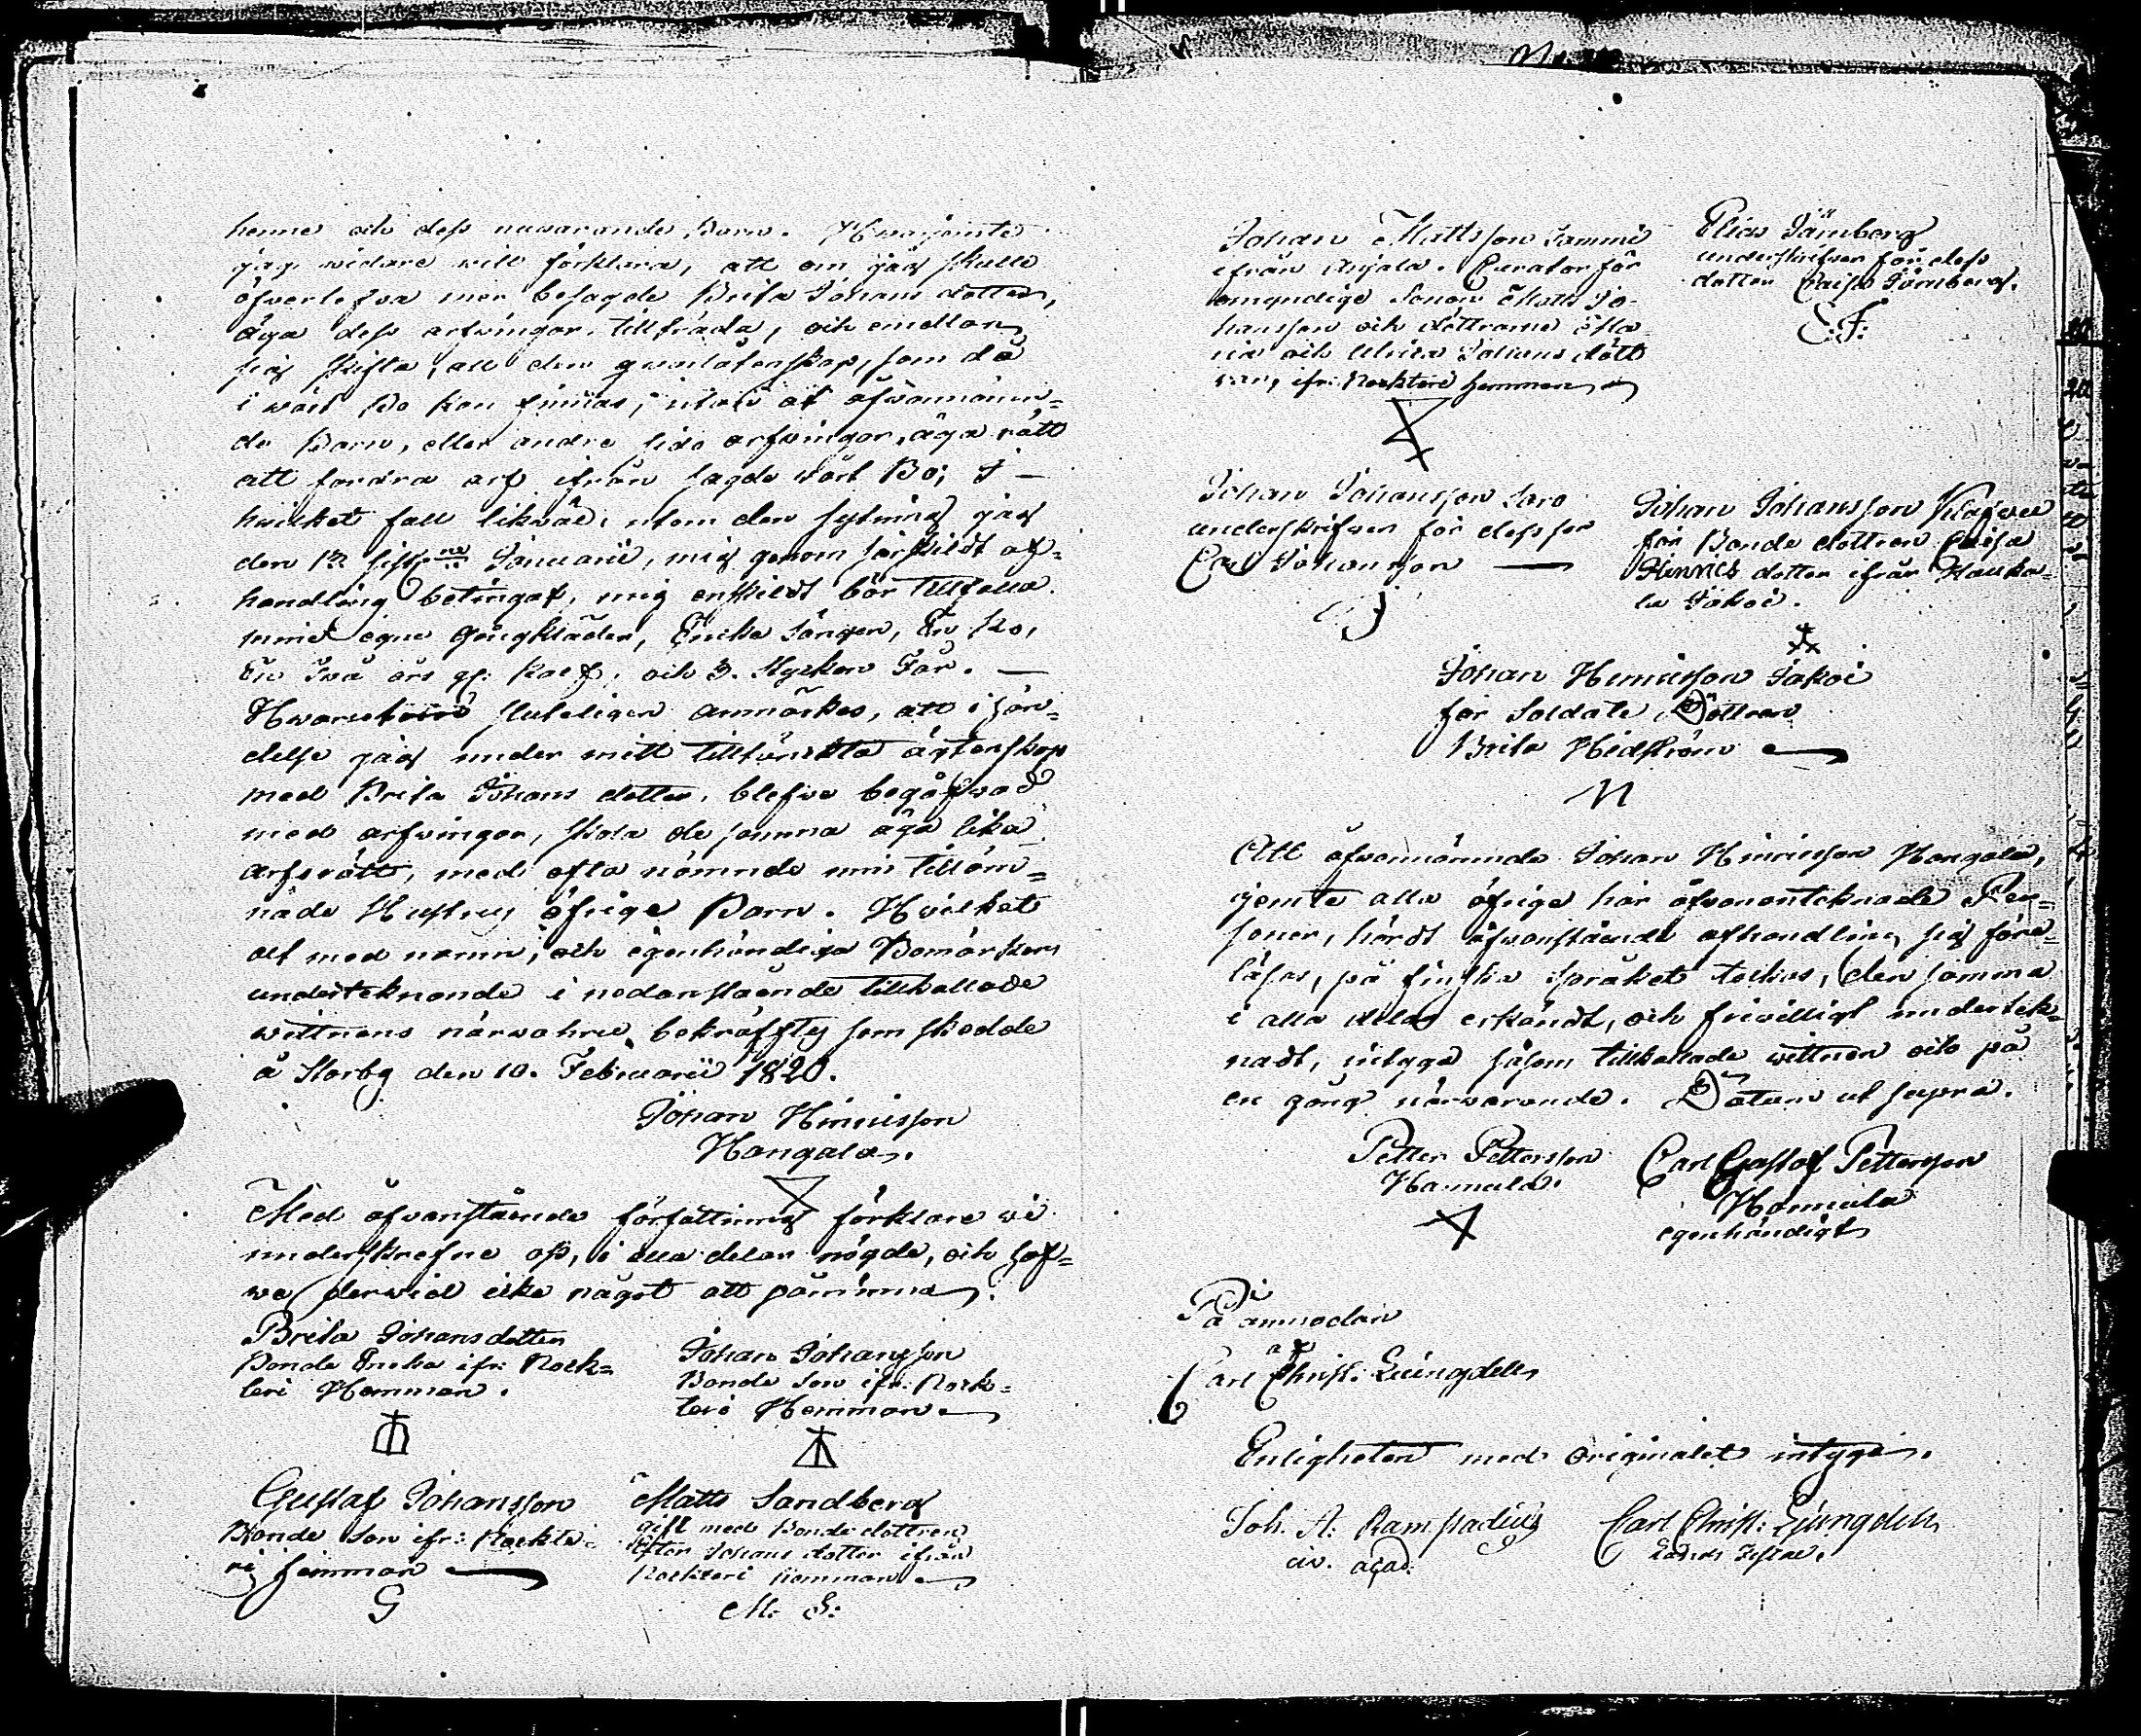 henne och dess nuvarande Barn. Hvarjemte
jag widare will förklara, att om jag skulle
öfverlefva mer besagde Brita Johans dotter,
äga dess arfvingar tillträda, och emellan
sig skifta, all den qvarlåtenskap, som då
i wårt Bo kan finnas, utan at ofvannämn=
de Barn, eller andre sido arfvingar, äga rätt
att fordra arf ifrån sagde wårt Bo; I
hvilket fall likväl, utom den sytning jag
den 12 sistne Januarii, mig genom särskildt af=
handling betingat, mig enskildt bör tillfalla
mine egne Gångkläder, Enka Sängen, En Ko,
En två års gl: Kalf, och 3. stycken Får.
Hvarutom sluteligen anmärkes, att i hän=
delse jag under mitt tilltänckta ägtenskap
med Brita Johans dotter, blefve begåfvad
med arfvingar, skola de samma äga lika
arfsrätt, med ofta nämnde min tilläm=
nade Hustrus öfrige Barn. Hvilket
alt med namn, och egenhändiga Bomärkens
undertecknande i nedanstående tillkallade
wittnens närwahru bekräfftes som skedde
å Storby den 10. Februarii 1820.
Johan Hinricsson
Hangala.
Med ofvanstående författning förklare wi
underskrefne oss, i alla delar nögde, och haf=
va derwid icke något att påminna.
Brita Johansdotter
Bonde Encka ifr: Rock=
teri Hemman.
Johan Johansson
Bonde Son ifr: Rock=
teri Hemman
Gustaf Johansson
Bonde Son ifr: Rockte=
ri hemman
G
Matts Sandberg
gift med Bonde dottren
Johans dotter ifrån
Rockteri hemman
M. S:
Johan Mattsson Sammi
ifrån Anjala. Curator för
omyndige Sonen Matts Jo-
hansson och döttrarne
och Ulrica Johans dött
rar, ifr: Rockteri hemman
Elias Törnberg
underskrifver för dess
dotter Caisa Törnberg.
E.T:
Johan Johansson Saro
underskrifver för dess son
Carl Johansson
CJ
Johan Johansson
för Bonde dottren Caisa
Hinrics dotter ifrån Hauka=
la
Johan Hinricsson
för Soldate Dottren
Brita Hedström
M
Att ofvannämnde Johan Hinricsson Hangala,
jemte alla öfrige här ofvanantecknade Per=
soner, hördt ofvanstående afhandling sig före=
läsas, på finska språket tolkas, den samma
i alla delar erkändt, och frivilligt underteck=
nadt, intyga såsom tillkallade wittnen och på
en gång närvarande. Datum ut supra.
Petter Pettersson
Hamula.
Carl Gustaf Pettersson
Hamula
egenhändigt
På anmodan
af
Carl Christ: Ljungdell
Enligheten med originalet intyga.
Joh. A: Rampadius
civ. acad.
Carl Christ: Ljungdell